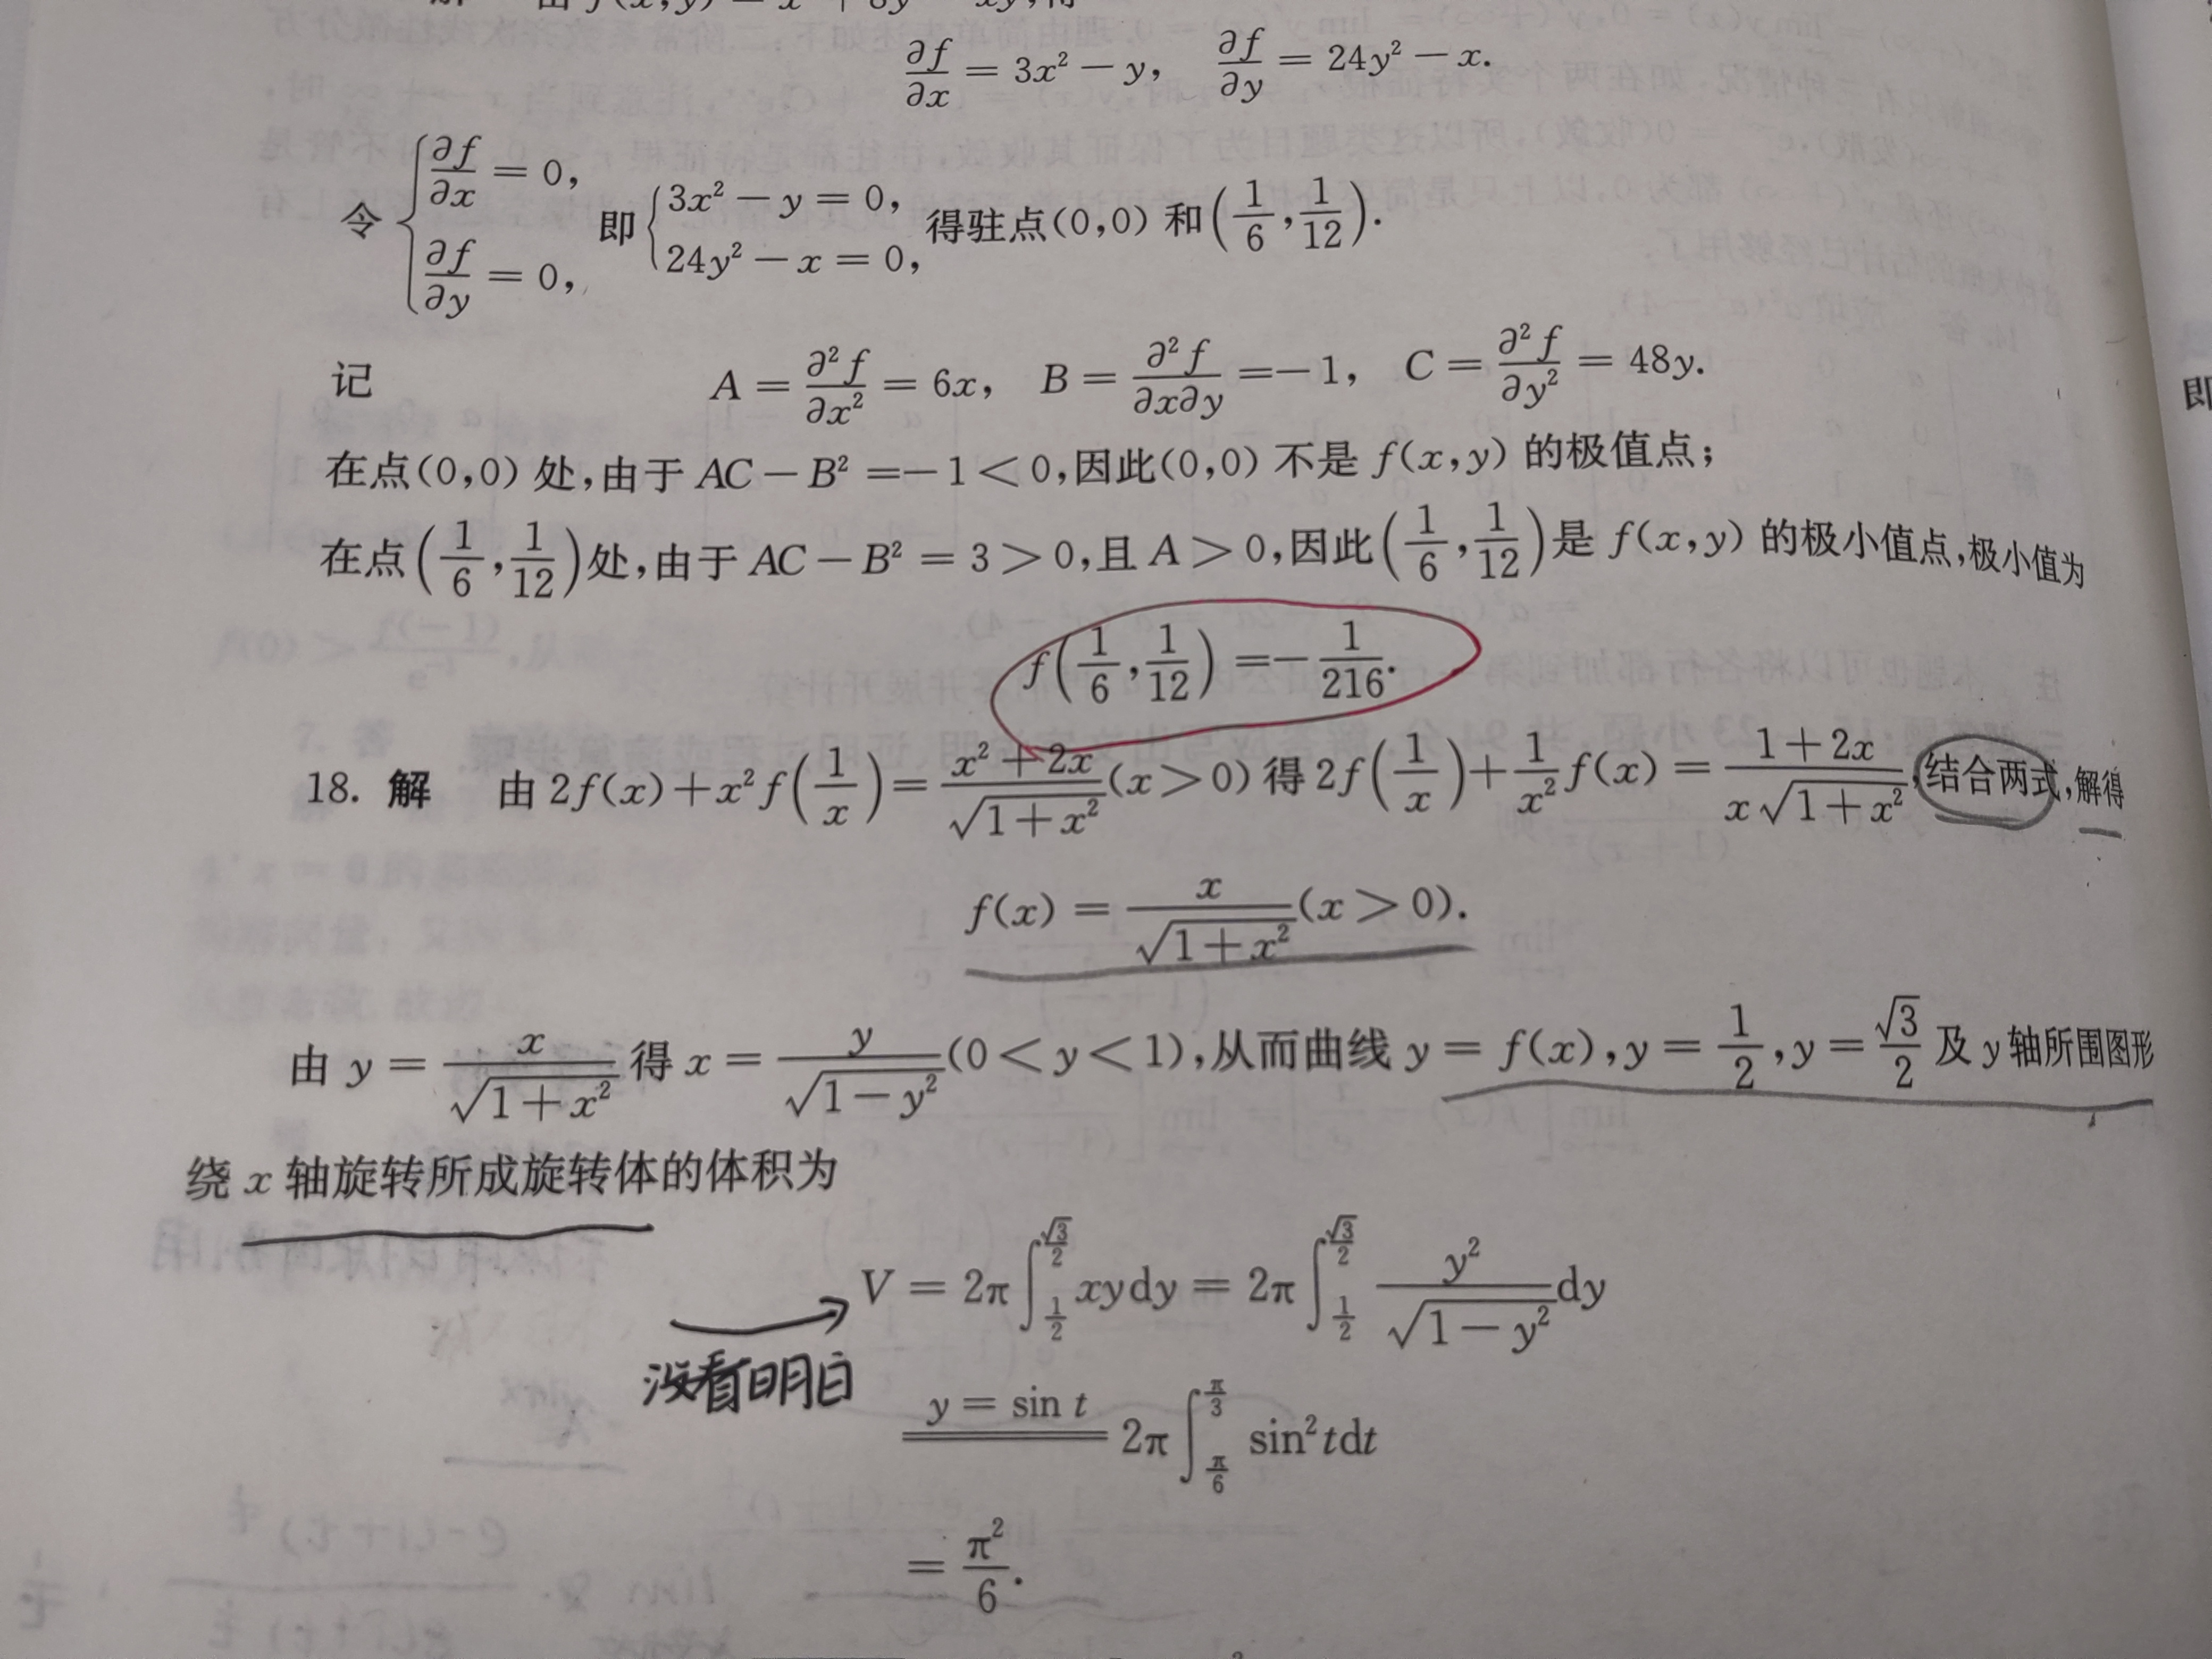 ∂f/∂x = 3x² − y, ∂f/∂y = 24y² − x.
令 { ∂f/∂x = 0, ∂f/∂y = 0, 即 { 3x² − y = 0, 24y² − x = 0, 得驻点(0,0) 和 (1/6, 1/12).
记 A = ∂²f/∂x² = 6x, B = ∂²f/∂x∂y = −1, C = ∂²f/∂y² = 48y.
在点(0,0) 处,由于 AC − B² = −1 < 0,因此(0,0) 不是 f(x,y) 的极值点;
在点(1/6, 1/12)处,由于 AC − B² = 3 > 0,且 A > 0,因此(1/6, 1/12)是 f(x,y) 的极小值点,极小值为
f(1/6, 1/12) = −1/216.
18. 解 由 2f(x) + x²f(1/x) = (x² + 2x)/√(1 + x²) (x > 0) 得 2f(1/x) + (1/x²)f(x) = (1 + 2x)/(x√(1 + x²)),结合两式,解得
f(x) = x/√(1 + x²) (x > 0).
由 y = x/√(1 + x²) 得 x = y/√(1 − y²) (0 < y < 1),从而曲线 y = f(x), y = 1/2, y = √3/2 及 y 轴所围图形
绕 x 轴旋转所成旋转体的体积为
V = 2π∫_{1/2}^{√3/2} xydy = 2π∫_{1/2}^{√3/2} y²/√(1 − y²) dy
没看明白
y = sin t 2π∫_{π/6}^{π/3} sin²tdt
= π²/6.
即